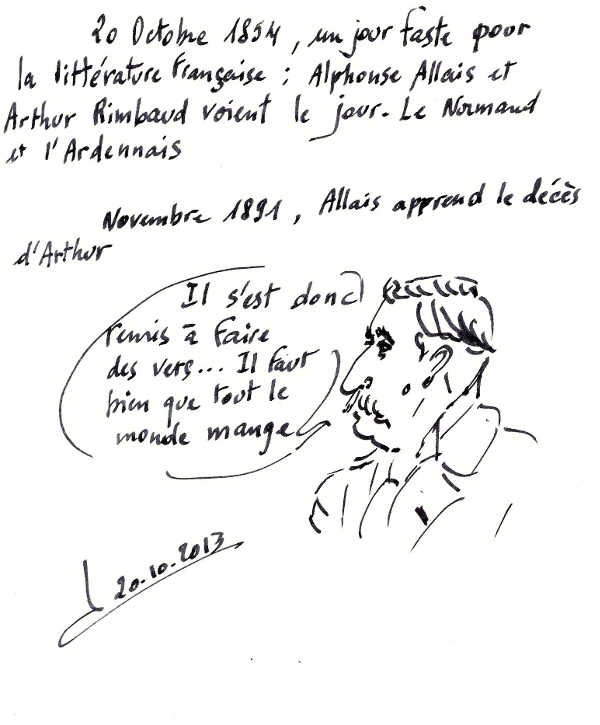 20 Octobre 1854, un jour faste pour
la littérature française : Alphonse Allais et
Arthur Rimbaud voient le jour. Le Normand
et l'Ardennais
Novembre 1891, Allais apprend le décès
d'Arthur
Il s'est donc
remis à faire
des vers... Il faut
bien que tout le
monde mange
20.10.2013